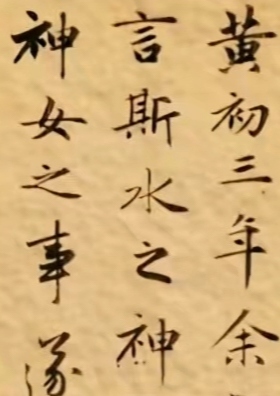 黄初三年余
言斯水之神
神女之事遂